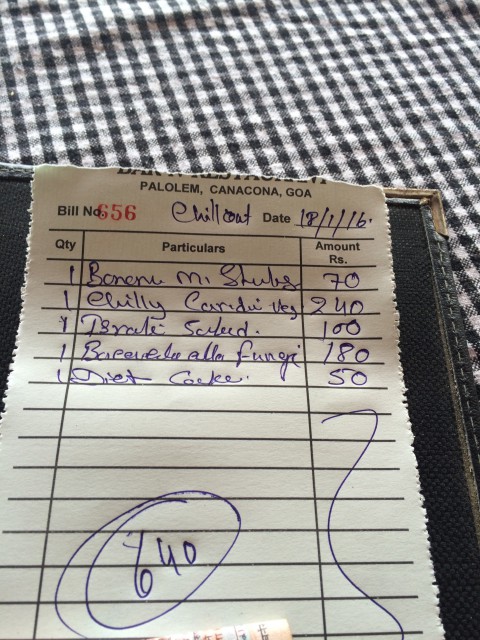 BAR & RESTAURANT
PALOLEM, CANACONA, GOA
Bill No. 656 Chillout Date 18/1/16.
Qty Particulars Amount Rs.
1 Banana M. 70
1 Chilly veg 240
1 100
1 alla fungi 180
1 Diet Coke. 50
640